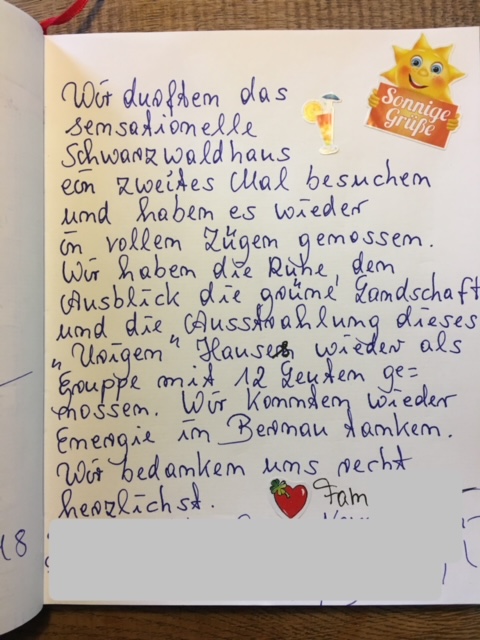 Wir durften das
sensationelle
Schwarzwaldhaus
ein zweites Mal besuchen
und haben es wieder
in vollen Zügen genossen.
Wir haben die Ruhe, den
Ausblick die grüne Landschaft
und die Ausstrahlung dieses
"Urigen" Hauses wieder als
Gruppe mit 12 Leuten ge=
nossen. Wir konnten wieder
Energie in Bernau tanken.
Wir bedanken uns recht
herzlichst. Fam
Sonnige
Grüße
18